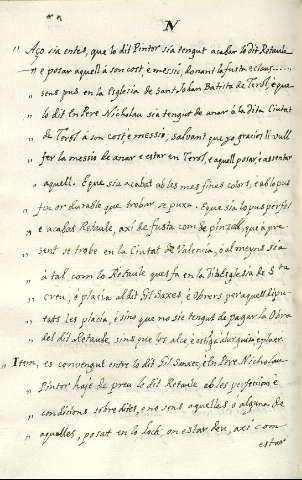 N
" Aço sia entes, que lo dit Pintor sia tengut acabar lo dit Retaule
" e posar aquell à son cost, è messiò, donant la fusta è claus......
" sens pus en la Esglesia de Sant Johan Batista de Terol, è que
" lo dit En Pere Nicholau sia tengut de anar à la dita Ciutat
" de Terol à son cost, è messiò, salvant que yo graciosli vull
" fer la messiò de anar è estar en Terol, e aquell posar è assentar
" aquell. E que sia acabat ab les mes fines colors, è ab lo pus
" fin or durable que trobar se puxa. E que sia lo pus perfet
" e acabat Retaule, axi de fusta com de pinzell, que à pre
" sent se trobe en la Ciutat de Valencia, ò al meyns sia
" à tal com lo Retaule ques fa en la Esglesia de Sta
" creu, è placia al dit Gil Saxes, è Obrers per aquell dipu-
" tats les placia, è sino que no sie tengut de pagar la Obra
" del dit Retaule, sinò que los
" Item, es convengut entre lo dit Gil Saxes, è En Pere Nicholau
" Pintor haje de preu lo dit Retaule ab les perfeccions è
" condicions sobre dites, e no sens aquelles, o alguna de
" aquelles, posat en lo loch, on estar deu, axi com
estar